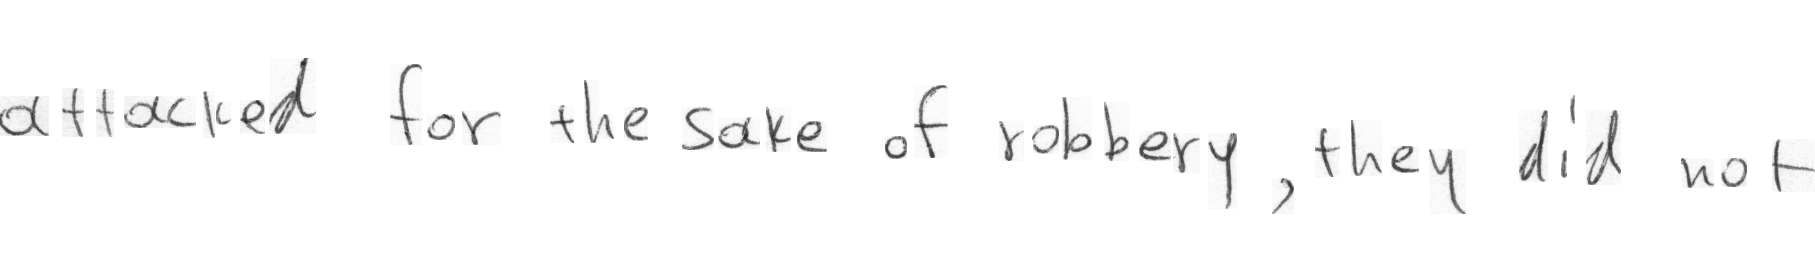 attacked for the sake of robbery, they did not